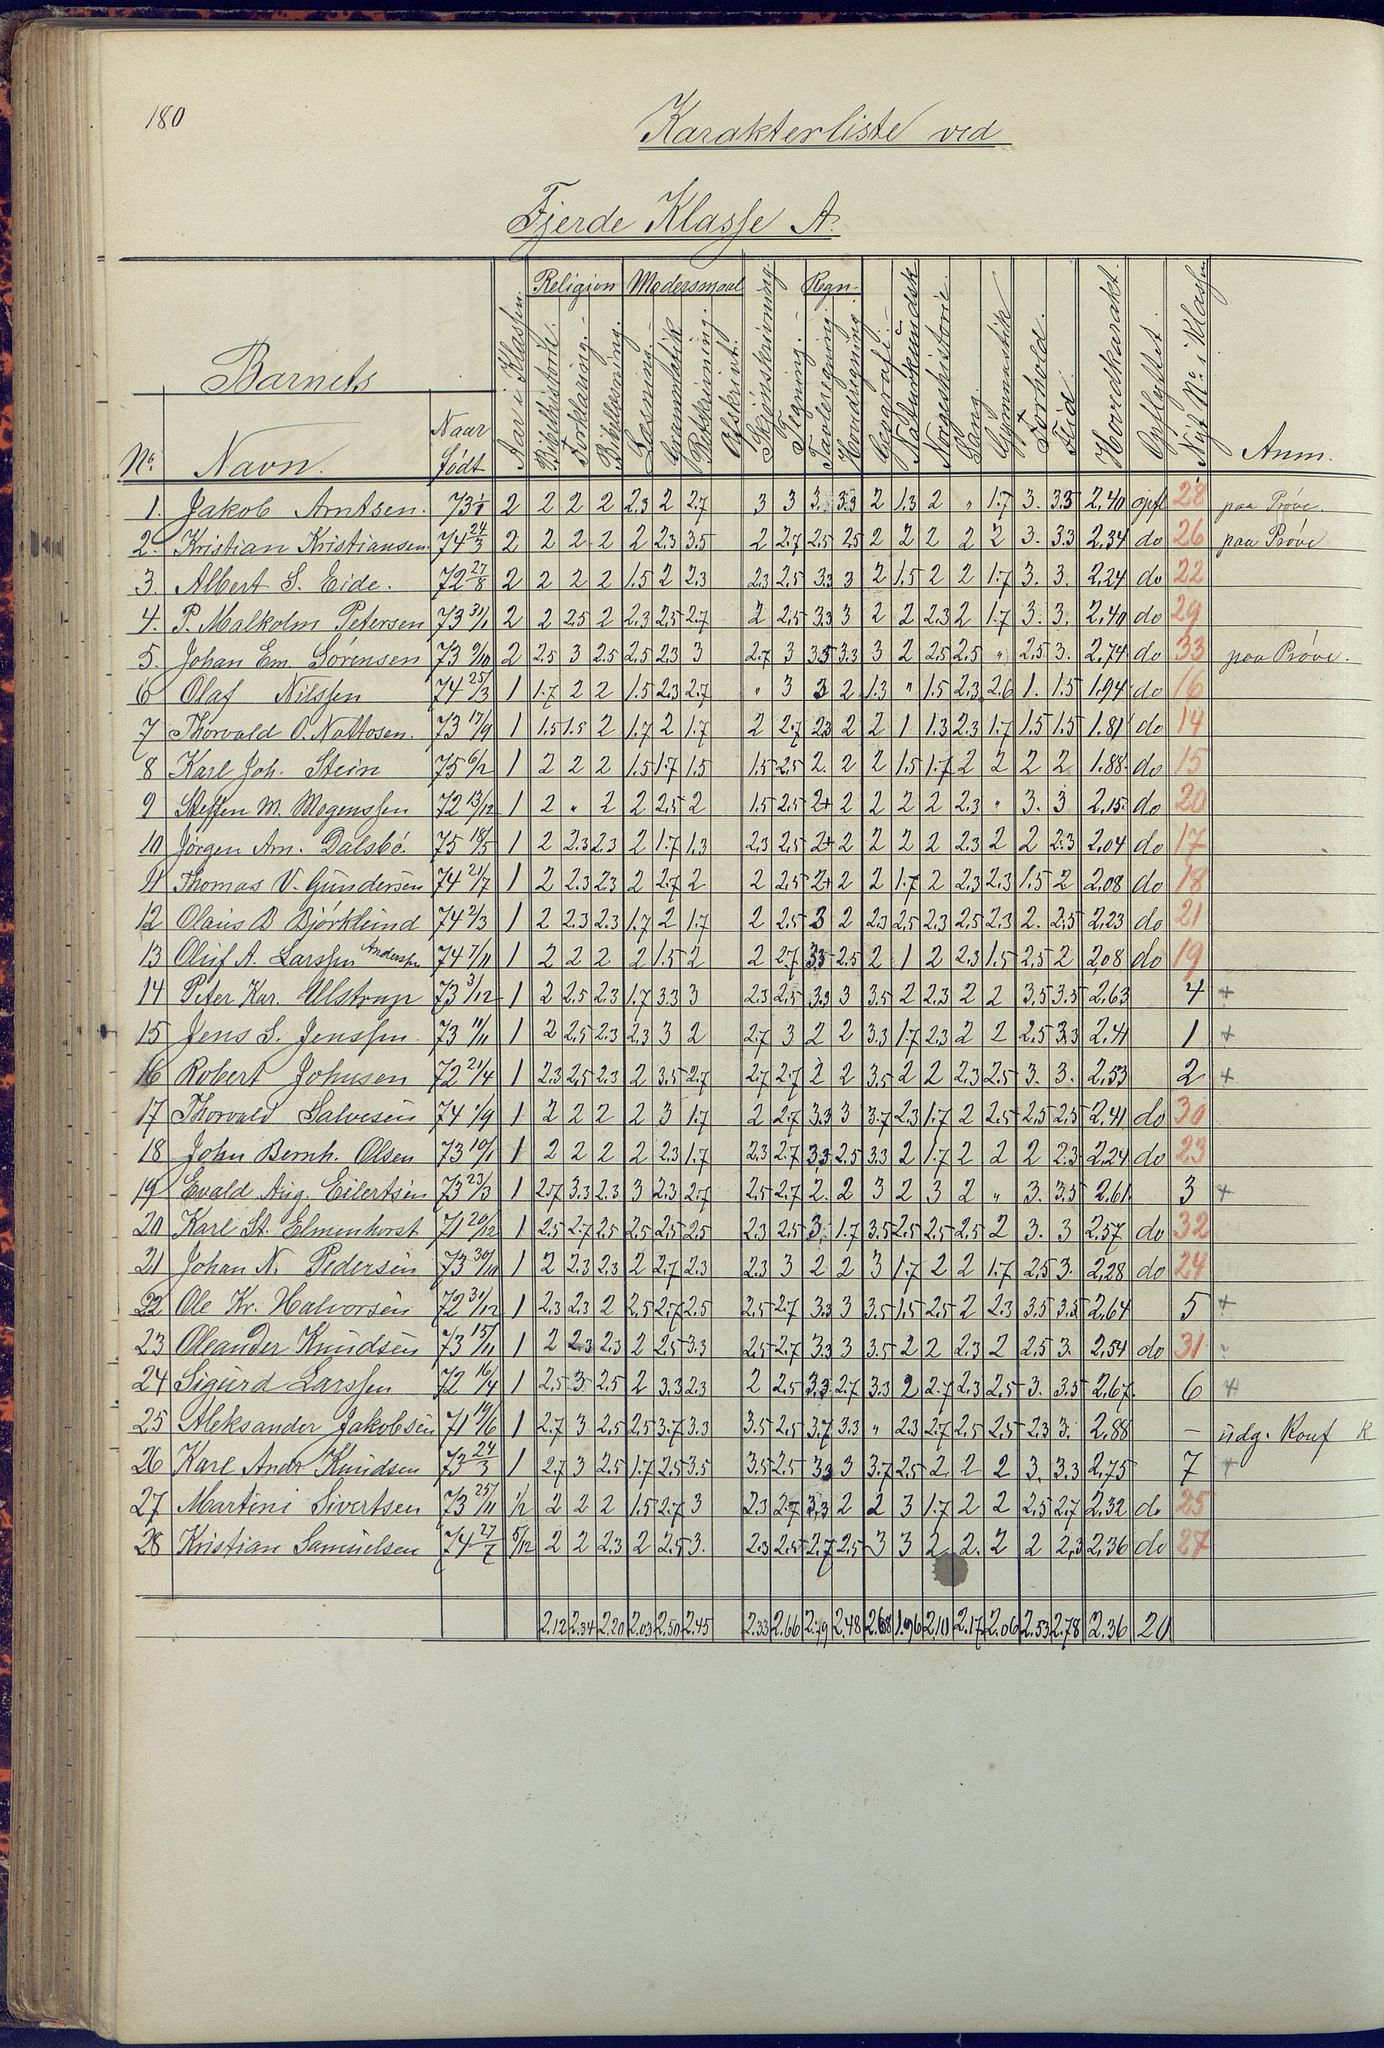 180
Karakterliste ved
Fjerde Klasse A.
Religion Modersmaal Regn-
Barnets
No. Navn. Naar født Aar i Klassen. Bibelhistorie. Forklaring. Bibellæsning. Læsning. Grammatik Retskrivning. Afskrivt. Skjønskrivning Tegning. Tavleregning. Hovedregning. Geografi. Naturkundsk Norgeshistorie. Sang Gymnastik Forhold. Flid. Hovedkarakt. Opflyttet. Nyt No. i Klassen Anm.
1. Jakob Arntsen. 2 2 2 2 2.3 2 2.7 3 3 3. 3.3 2 1.3 2 " 1.7 3. 3.3 2.40 opfl 28 paa Prøve
2. Kristian Kristiansen. 74 24/3 2 2 2 2 2 2.3 3.5 2 2.7 2.5 2.5 2 2 2 2 2 3. 3.3 2.34 do 26 paa Prøve
3. Albert S. Eide. 72 27/8 2 2 2 2 1.5 2 2.3 2.3 2.5 3.3 3 2 1.5 2 2 1.7 3. 3. 2.24 do 22
4. P. Malkolm Petersen 73 31/1 2 2 2.5 2 2.3 2.5 2.7 2 2.5 3.3 3 2 2 2.3 2 1.7 3. 3. 2.40 do 29
5. Johan Em. Sørensen 73 9/10 2 2.5 3 2.5 2.5 2.3 3 2.7 3 3.5 3.3 3 2 2.5 2.5 " 2.5 3. 2.74 do 33 paa Prøve.
6 Olaf Nilssen 74 25/3 1 1.7 2 2 1.5 2.3 2.7 " 3 3 2 1.3 " 1.5 2.3 2.6 1. 1.5 1.94 do 16
7 Thorvald O. Nattosen. 73 17/9 1 1.5 1.5 2 1.7 2 1.7 2 2.7 2.3 2 2 1 1.3 2.3 1.7 1.5 1.5 1.81 do 14
8 Karl Joh. Stein 75 6/2 1 2 2 2 1.5 1.7 1.5 1.5 2.5 2. 2 2 1.5 1.7 2 2 2 2 1.88 do 15
9 Steffen M. Mogenssen 72 13/12 1 2 " 2 2 2.5 2 1.5 2.5 2+ 2 2 2 2 2.3 " 3. 3 2.15 do 20
10 Jørgen Am. Dalsbó. 75 18/5 1 2 2.3 2.3 2 1.7 1.3 2.3 2.5 2+ 2 2 2 2 2.3 2 2 2.3 2.04 do 17
11 Thomas V. Gundersen 74 21/7 1 2 2.3 2.3 2 2.7 2 2 2.5 2+ 2 2 1.7 2 2.3 2.3 1.5 2 2.08 do 18
12 Olaus B Björklund 74 2/3 1 2 2.3 2.3 1.7 2 1.7 2 2.5 3 2 2.3 2.5 2.3 2.5 2.3 2. 2.5 2.23 do 21
13 Oluf A. Larssen Anderssen 74 7/11 1 2 2 2 2 1.5 2 2 2.7 3.3 2.5 2 1 2 2.3 1.5 2.5 2 2.08 do 19
14 Peter Kar. Ulstrup 73 3/12 1 2 2.5 2.3 1.7 3.3 3 2.3 2.5 3.3 3 3.5 2 2.3 2 2 3.5 3.5 2.63 4 +
15 Jens S. Jenssen. 73 11/11 1 2 2.5 2.3 2.3 3 2 2.7 3 2 2 3.3 1.7 2.3 2 2 2.5 3.3 2.41 1 +
16 Robert Johnsen 72 21/4 1 2.3 2.5 2.3 2 3.5 2.7 2.7 2.7 2 2 3.5 2 2 2.3 2.5 3. 3. 2.53 2 +
17 Thorvald Salvesen 74 1/9 1 2 2 2 2 3 1.7 2 2.7 3.3 3 3.7 2.3 1.7 2 2.5 2.5 2.5 2.41 do 30
18 John Bernh. Olsen 73 10/1 1 2 2 2 2 2.3 1.7 2.3 2.7 3.3 2.5 3.3 2 1.7 2 2 2 2.3 2.24 do 23
19 Evald Aug. Eilertsen 73 23/3 1 2.7 3.3 2.3 3 2.3 2.7 2.5 2.7 2. 2 3 2 3 2 " 3. 3.5 2.61 3 +
20 Karl St. Elmenhorst 71 20/12 1 2.5 2.7 2.5 2.5 2.5 2.5 2.3 2.5 3 1.7 3.5 2.5 2.5 2.5 2 3. 3 2.57 do 32
21 Johan N. Pedersen 73 30/10 1 2 2.3 2.3 2 2.7 2.3 2.3 3 2 2 3 1.7 2 2 1.7 2.5 3. 2.28 do 24
22 Ole Kr. Halvorsen 72 31/12 1 2.3 2.3 2 2.5 2.7 2.5 2.5 2.7 3.3 3 3.5 1.5 2.5 2 2.3 3.5 3.5 2.64 5 +
23 Oleander Knudsen 73 15/11 1 2 2.3 2.3 2 2.5 3.3 2.5 2.7 3.3 3 3.5 2 2 2.3 2 2.5 3. 2.54 do 31 ?
24 Sigurd Larssen 72 16/4 1 2.5 3. 2.5 2 3.3 2.3 2 2.5 3.3 2.7 3.3 2 2.7 2.3 2.5 3. 3.5 2.67 6 +
25 Aleksander Jakobsen 71 19/6 1 2.7 3 2.5 2.5 3.7 3.3 3.5 2.5 3.7 3.3 " 2.3 2.7 2.5 2.5 2.3 3. 2.88 – udg. Konf
26 Karl Andr Knudsen 73 24/3 1 2.7 3 2.5 1.7 2.5 3.5 3.5 2.5 3.3 3 3.7 2.5 2. 2 2 3. 3.3 2.75 7 +
27 Martini Sivertsen 73 25/11 1/2 2 2 2 1.5 2.7 3 2.3 2.7 3.3 2 2 3 1.7 2 2 2.5 2.7 2.32 do 25
28 Kristian Samuelsen 74 27/7 5/12 2 2 2.3 2 2.5 3. 2.3 2.5 2.7 2.5 3 3 2 2. 2 2 2.3 2.36 do 27
2.12 2.34 2.20 2.03 2.50 2.45 2.33 2.66 2.79 2.48 2.68 1.96 2.10 2.17 2.06 2.53 2.78 2.36 20